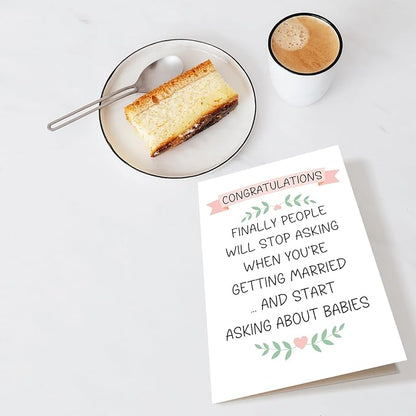 CONGRATULATIONS
FINALLY PEOPLE
WILL STOP ASKING
WHEN YOU'RE
GETTING MARRIED
... AND START
ASKING ABOUT BABIES